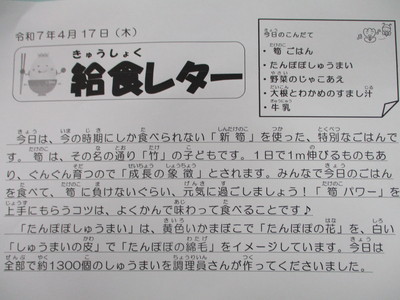 令和7年4月17日（木）
きゅうしょく
給食レター
今日のこんだて
・筍ごはん
・たんぽぽしゅうまい
・野菜のじゃこあえ
・大根とわかめのすまし汁
・牛乳
今日は、今の時期にしか食べられない「新筍」を使った、特別なごはんで
す。筍は、その名の通り「竹」の子どもです。1日で1m伸びるものもあ
り、ぐんぐん育つので「成長の象徴」とされます。みんなで今日のごはん
を食べて、筍に負けないぐらい、元気に過ごしましょう！「筍パワー」を
上手にもらうコツは、よくかんで味わって食べることです♪
「たんぽぽしゅうまい」は、黄色いかまぼこで「たんぽぽの花」を、白い
「しゅうまいの皮」で「たんぽぽの綿毛」をイメージしています。今日は
全部で約1300個のしゅうまいを調理員さんが作ってくださいました。